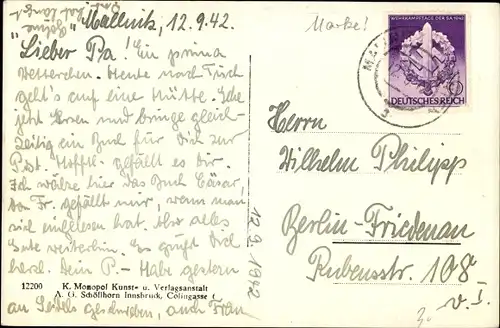 Mallnitz, 12.9.42.
Lieber Pa! Ein prima
Wetterchen. Heute nach Tisch
geht's auf eine Hütte. Gehe
jetzt Essen und bringe gleich-
zeitig ein Buch für Dich zur
Post. Hofftl. gefällt es Dir.
Ich wälze hier das Buch Cäsar,
von Fr. gefällt mir, wenn man
sich eingelesen hat. Also alles
Gute weiterhin. Es grüßt Dich
herzl. Dein P. - Habe gestern
an Seidels geschrieben, auch Frau
12200 K. Monopol Kunst- u. Verlagsanstalt
A. G. Schöllhorn Innsbruck, Cölingasse
12.9.1942
Marke!
WEHRKAMPFTAGE DER SA 1942
DEUTSCHES REICH
Herrn
Wilhelm Philipp
Berlin-Friedenau
Rubensstr. 108
v. I.